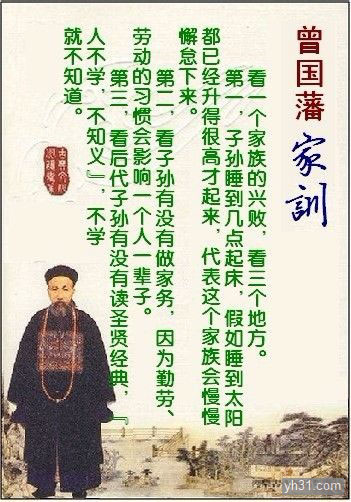 曾国藩
家訓
看一个家族的兴败，看三个地方。
第一，子孙睡到几点起床，假如睡到太阳
都已经升得很高才起来，代表这个家族会慢慢
懈怠下来。
第二，看子孙有没有做家务，因为勤劳、
劳动的习惯会影响一个人一辈子。
第三，看后代子孙有没有读圣贤经典，『
人不学，不知义』，不学
就不知道。
yh31.com